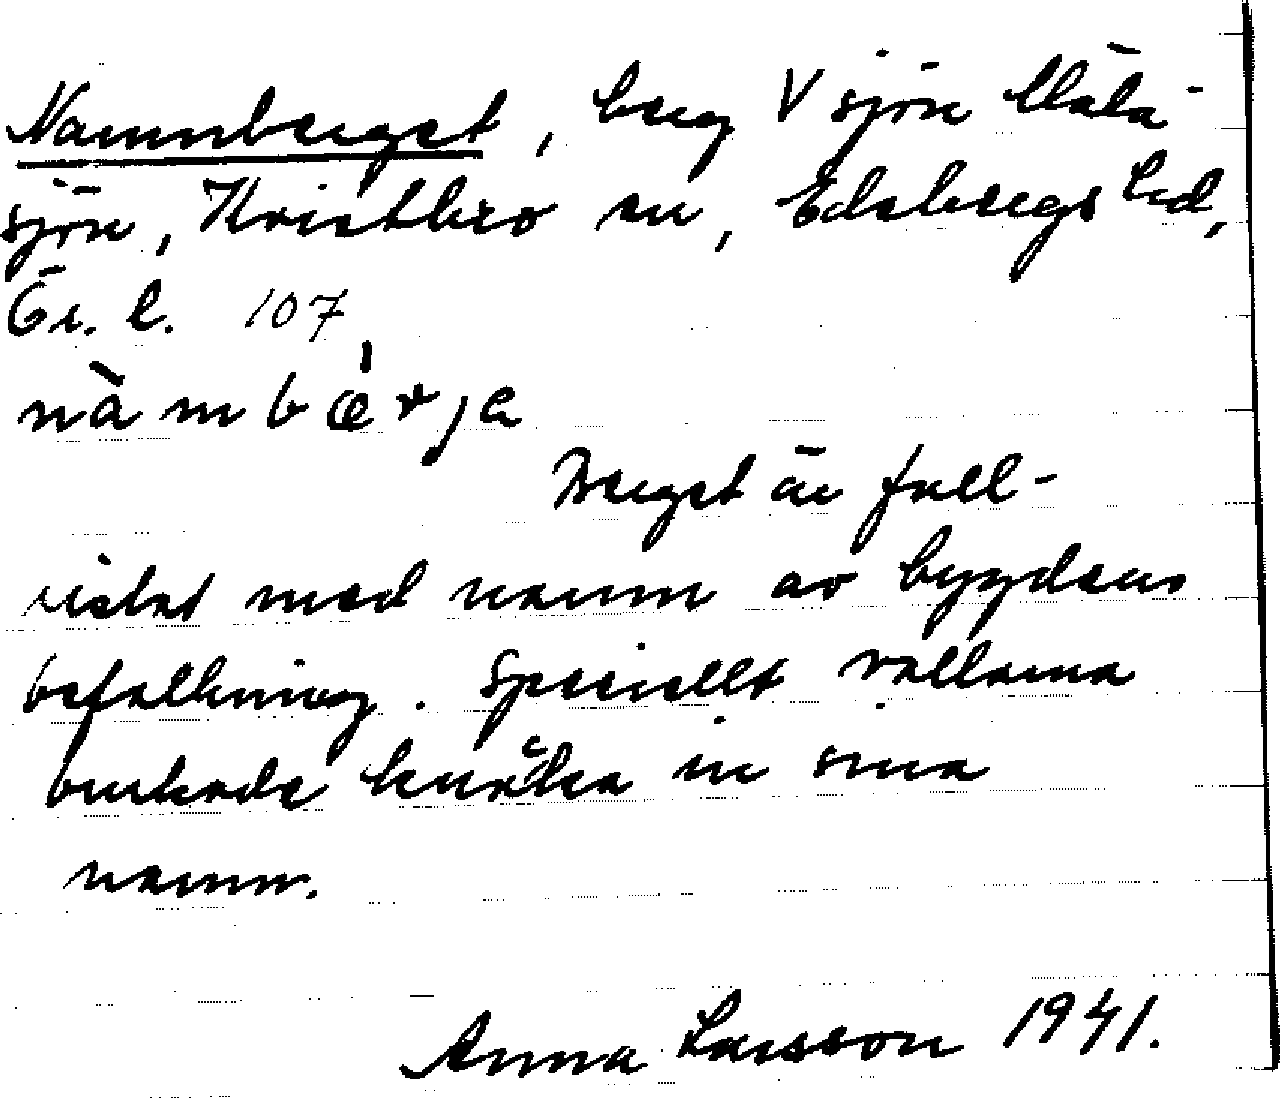 Namnberget, berg V sjön Multa-
sjön, Kvistbro sn, Edsbergs hd,
Ör. l. 107
nàmbæ̀rja
Berget är full-
ristat med namn av bygdens
befolkning. Speciellt vallarna
brukade knåka in sina
namn.
Anna Larsson 1941.